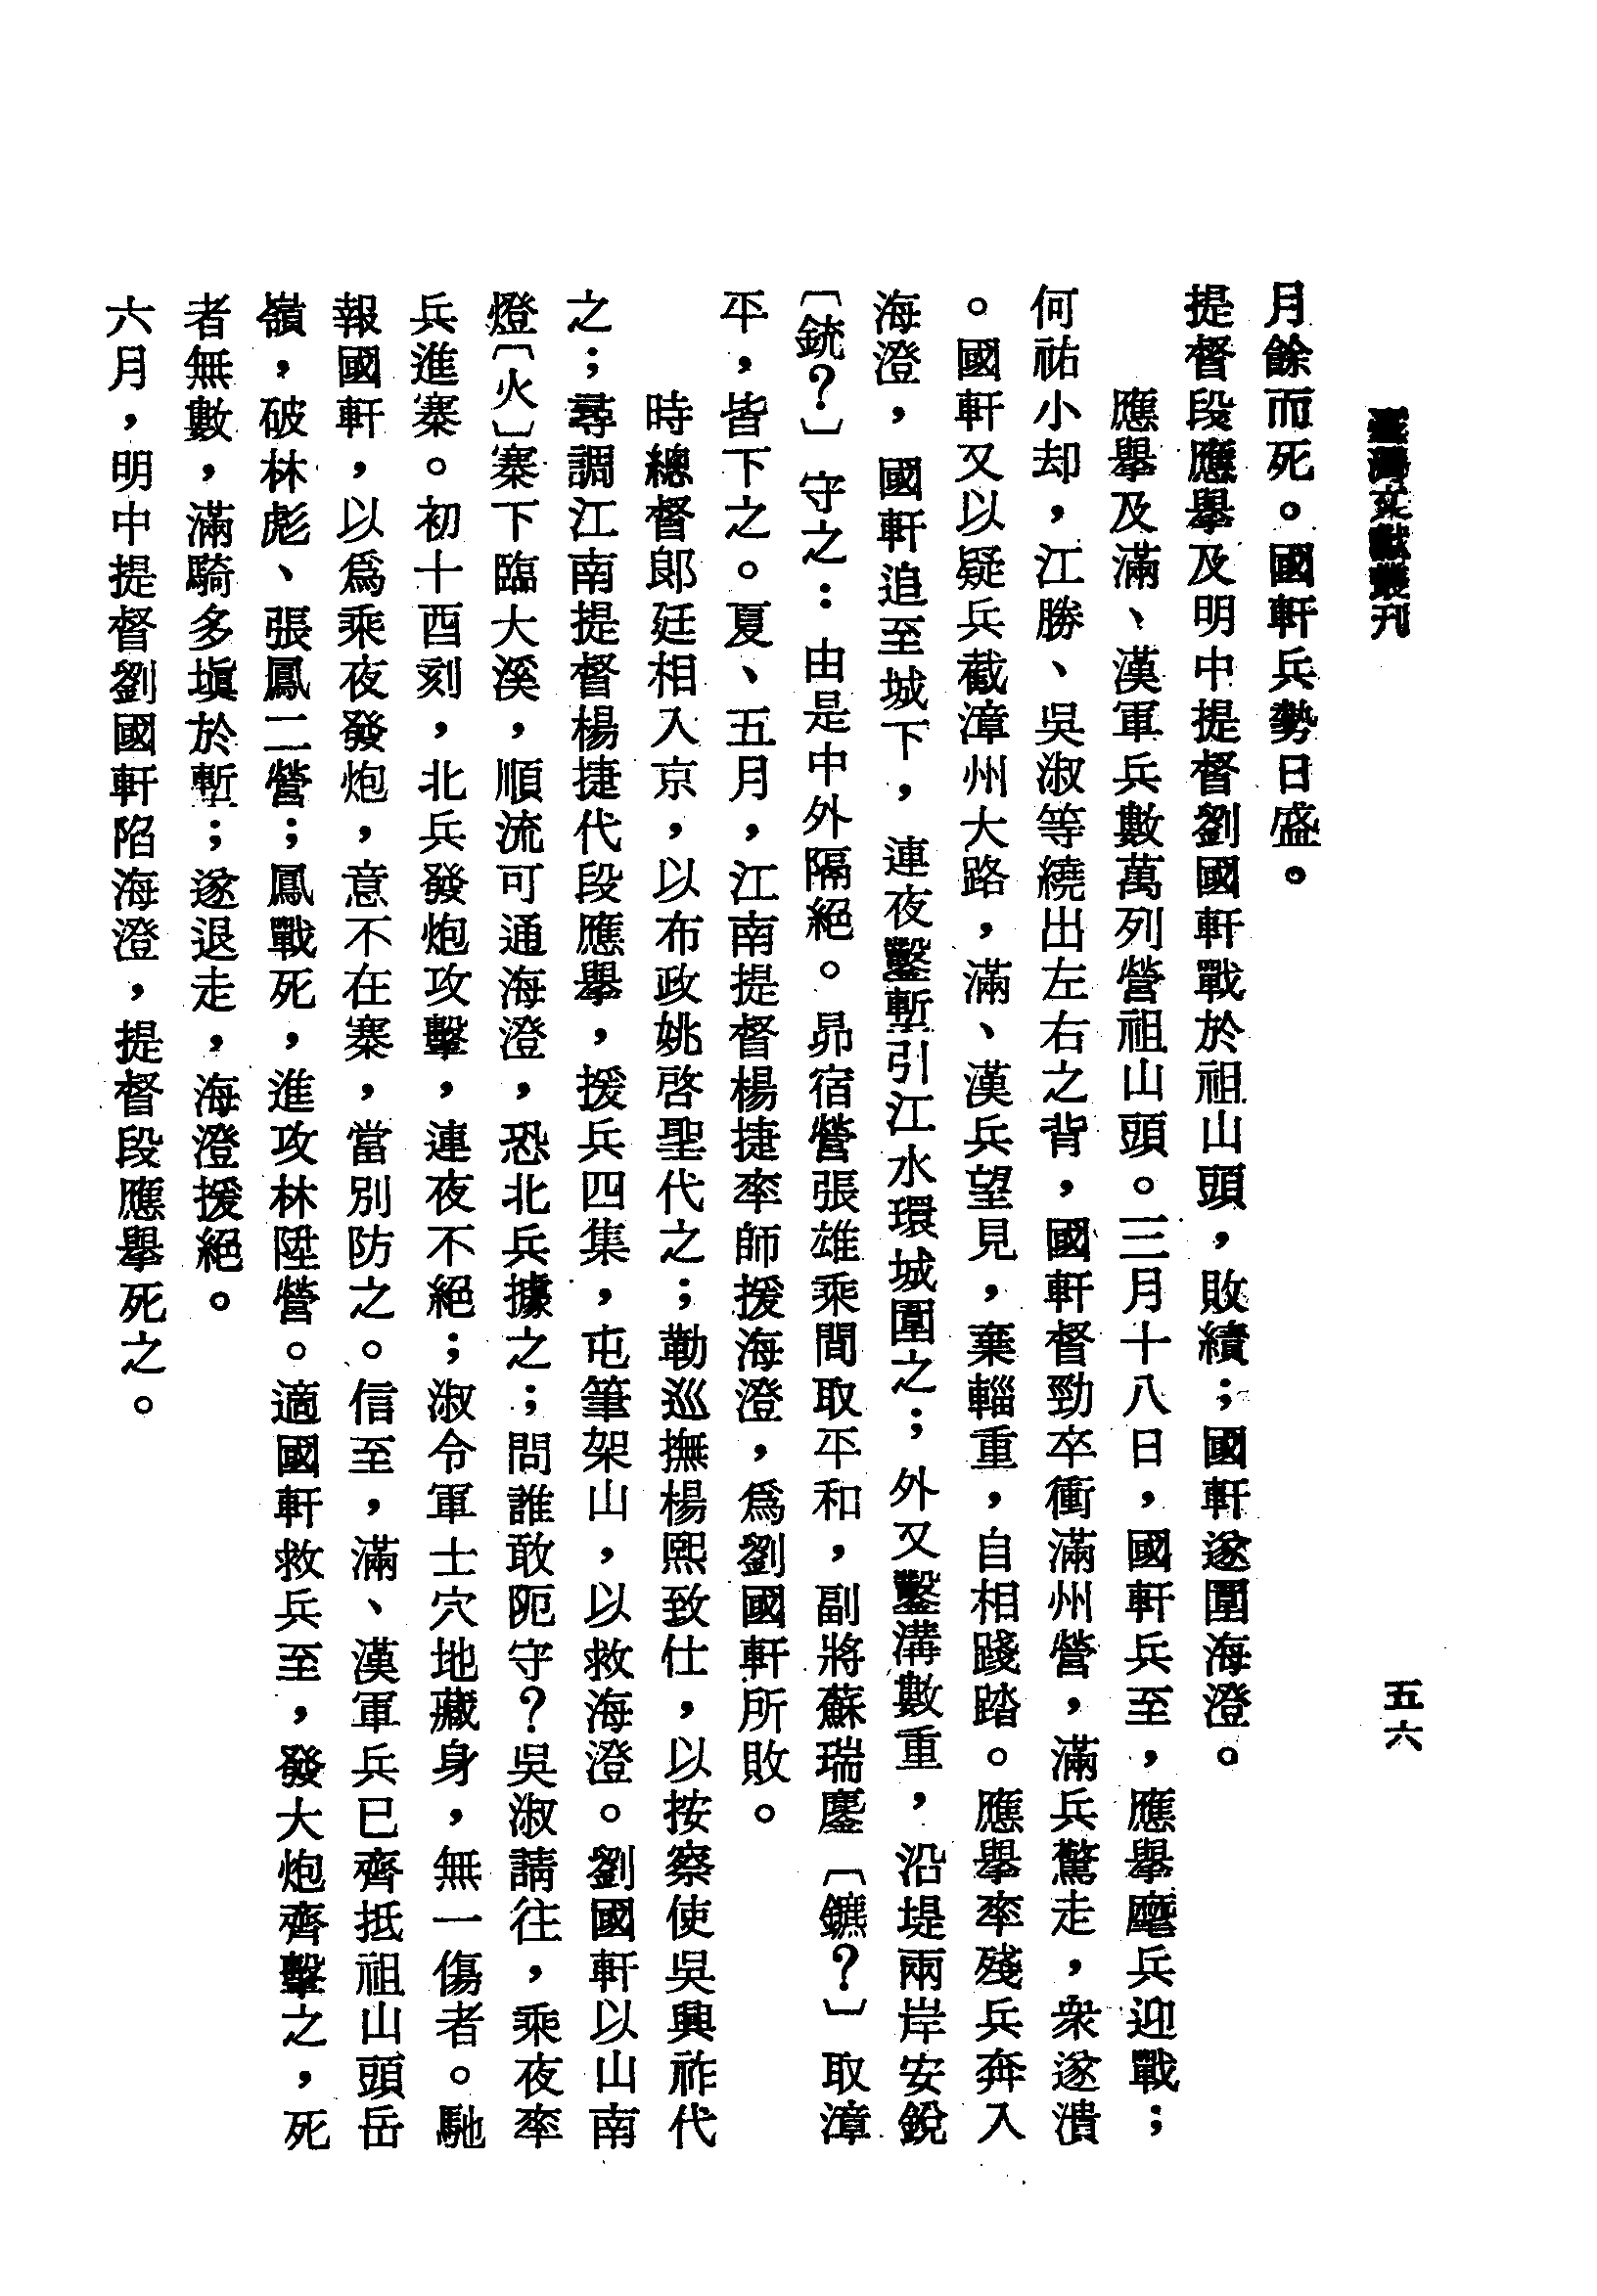 臺灣文獻叢刊
五六
月餘而死。國軒兵勢日盛。
提督段應舉及明中提督劉國軒戰於祖山頭，敗績；國軒遂圍海澄。
應舉及滿、漢軍兵數萬列營祖山頭。三月十八日，國軒兵至，應舉麾兵迎戰；
何祐小却，江勝、吳淑等繞出左右之背，國軒督勁卒衝滿州營，滿兵驚走，衆遂潰
。國軒又以疑兵截漳州大路，滿、漢兵望見，棄輜重，自相踐踏。應舉率殘兵奔入
海澄，國軒追至城下，連夜鑿塹引江水環城圍之；外又鑿溝數重，沿堤兩岸安銳
〔銃？〕守之：由是中外隔絕。昴宿營張雄乘間取平和，副將蘇瑞鏖〔鑣？〕取漳
平，皆下之。夏、五月，江南提督楊捷率師援海澄，爲劉國軒所敗。
時總督郎廷相入京，以布政姚啓聖代之；勒巡撫楊熙致仕，以按察使吳興祚代
之；尋調江南提督楊捷代段應舉，援兵四集，屯筆架山，以救海澄。劉國軒以山南
燈〔火〕寨下臨大溪，順流可通海澄，恐北兵據之；問誰敢阨守？吳淑請往，乘夜率
兵進寨。初十酉刻，北兵發炮攻擊，連夜不絕；淑令軍士穴地藏身，無一傷者。馳
報國軒，以爲乘夜發炮，意不在寨，當別防之。信至，滿、漢軍兵已齊抵祖山頭岳
嶺，破林彪、張鳳二營；鳳戰死，進攻林陞營。適國軒救兵至，發大炮齊擊之，死
者無數，滿騎多塡於塹；遂退走，海澄援絕。
六月，明中提督劉國軒陷海澄，提督段應舉死之。